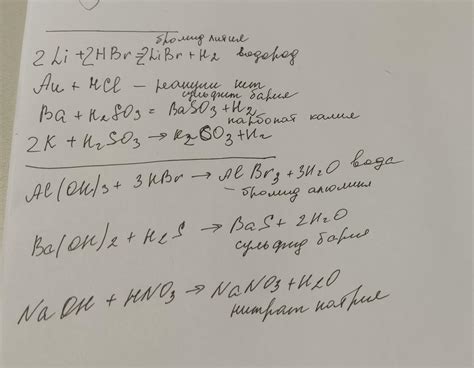 бромид лития
2Li + 2HBr = 2LiBr + H2 водород
Au + HCl – реакции нет
сульфит бария
Ba + H2SO3 = BaSO3 + H2
карбонат калия
2K + H2SO3 → K2CO3 + H2
Al(OH)3 + 3HBr → AlBr3 + 3H2O вода
– бромид алюминия
Ba(OH)2 + H2S → BaS + 2H2O
сульфид бария
NaOH + HNO3 → NaNO3 + H2O
нитрат натрия